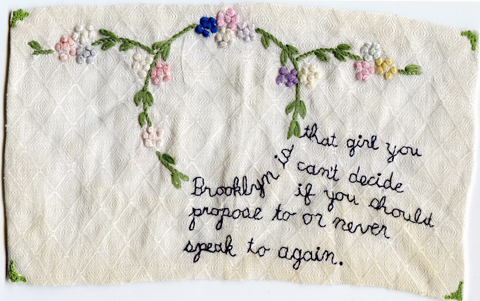 Brooklyn is that girl you
can't decide
if you should
propose to or never
speak to again.